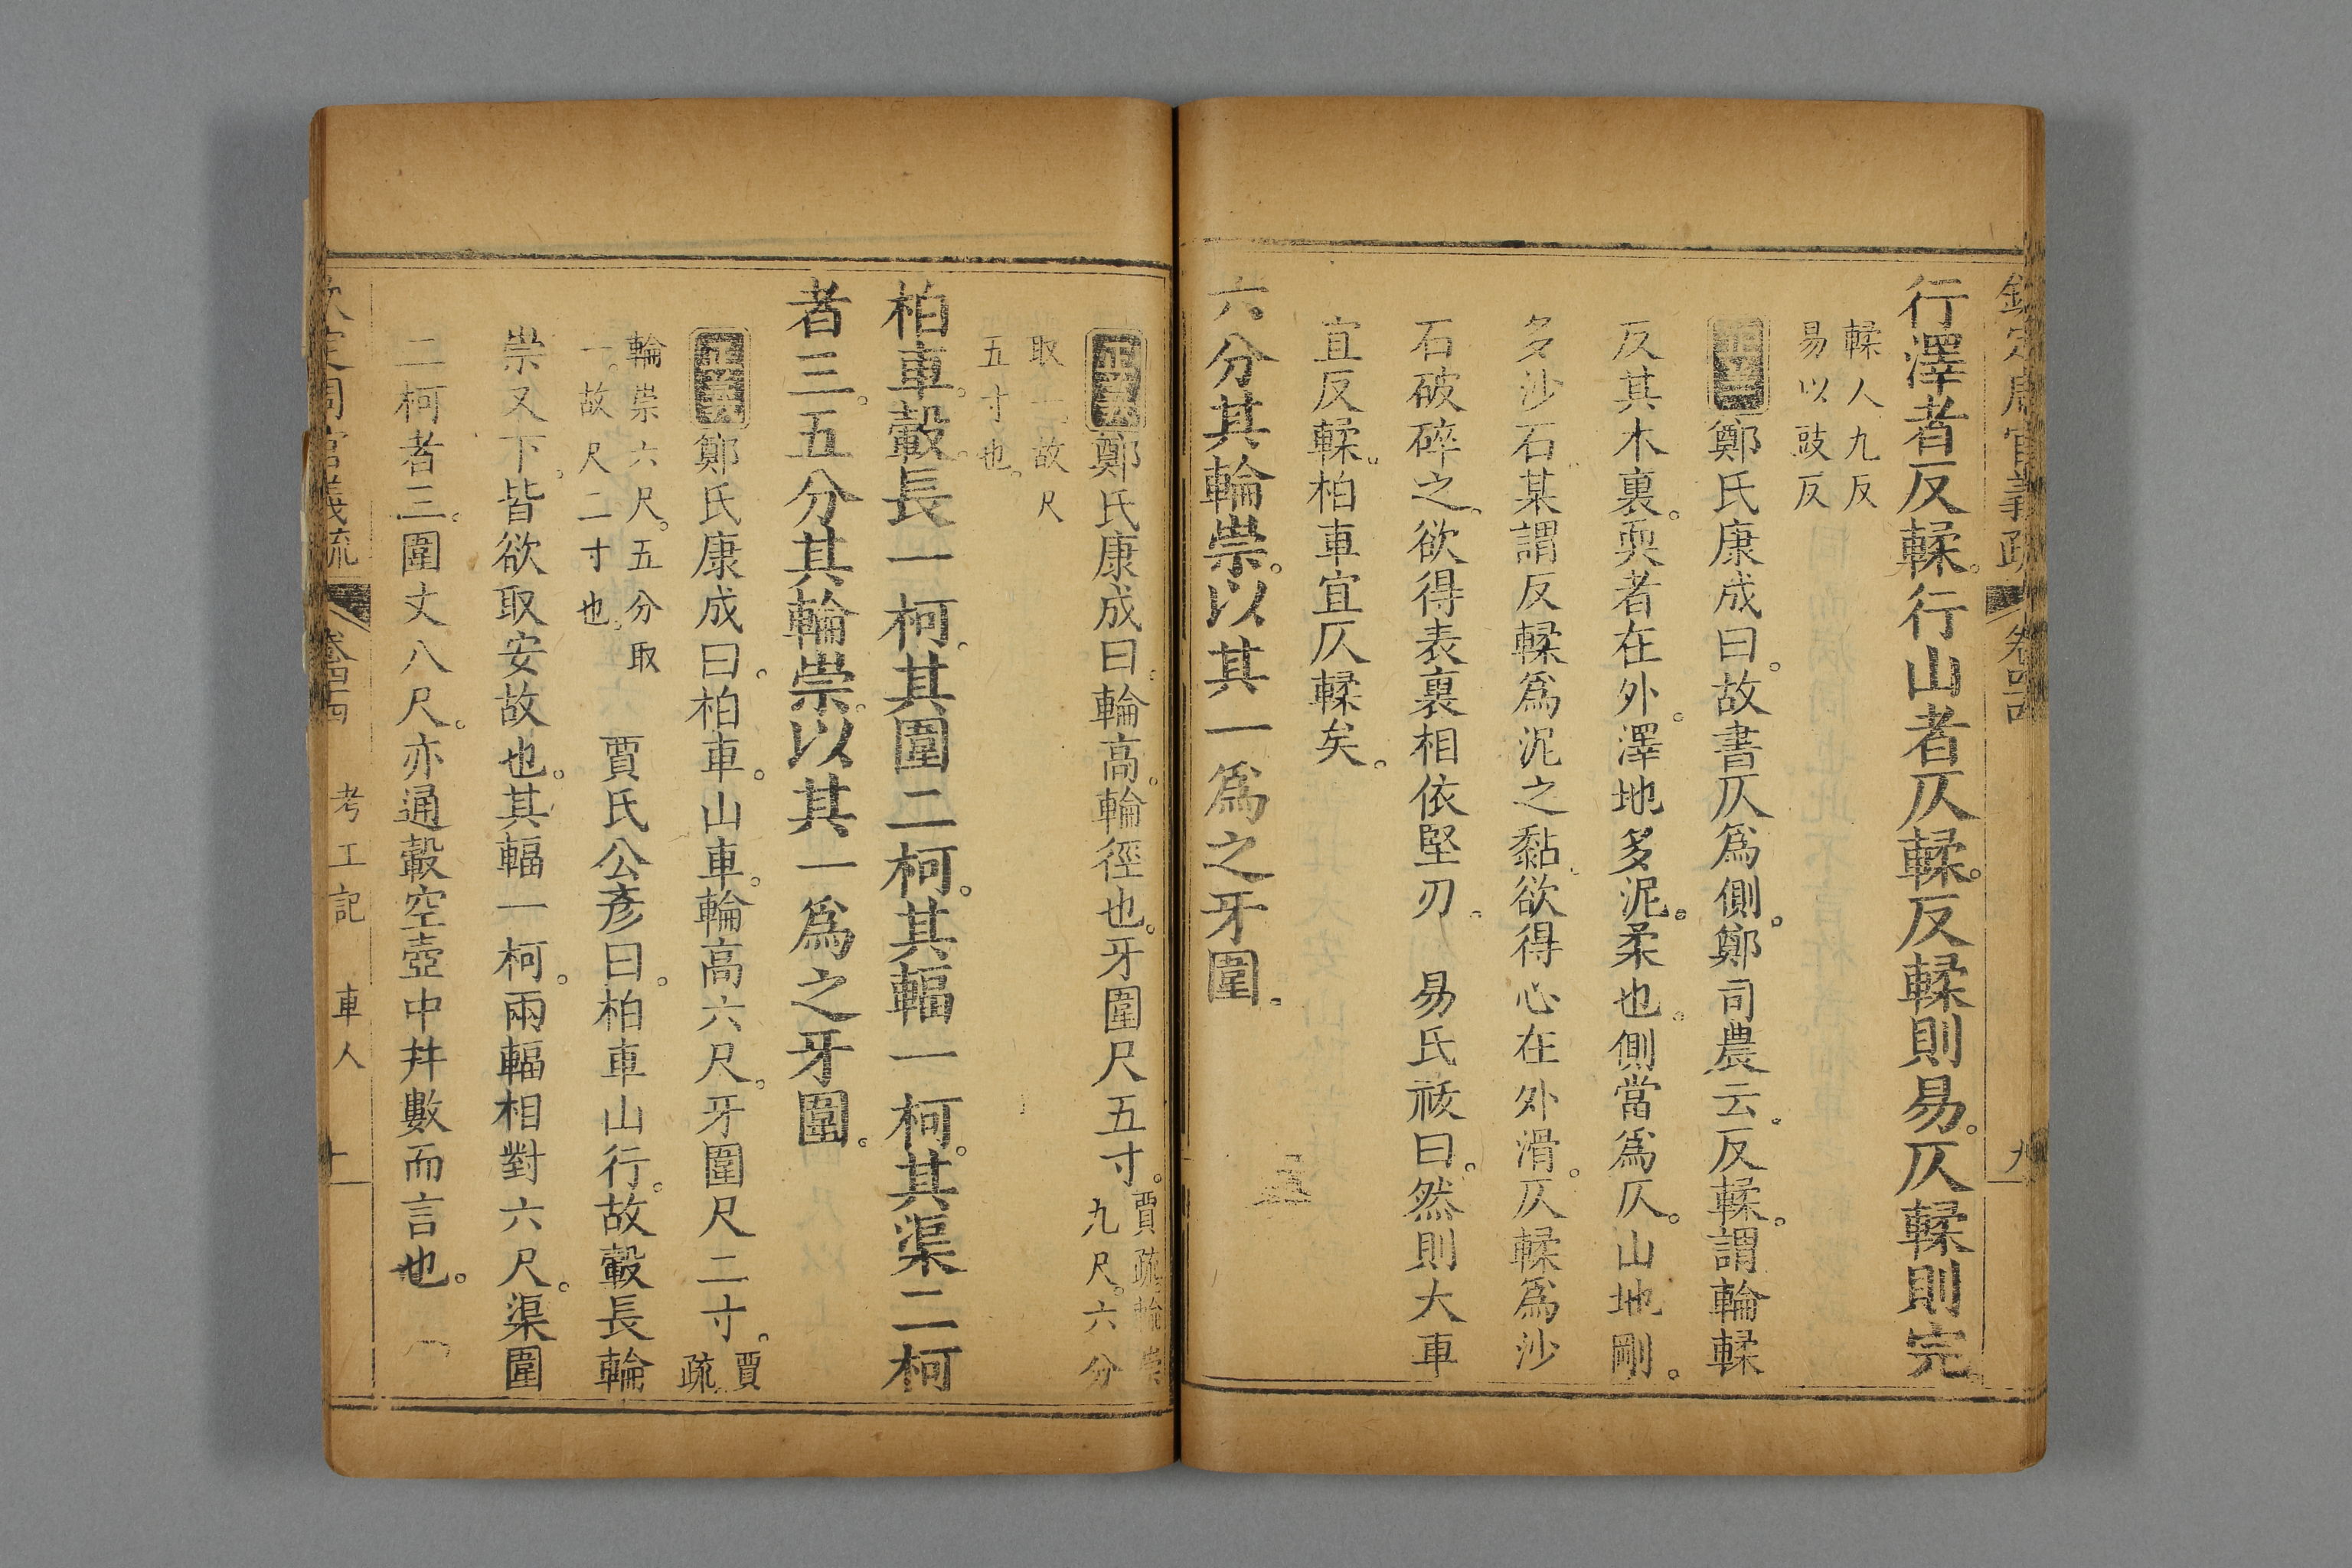 欽定周官義疏 卷四四 九
行澤者反輮。行山者仄輮。反輮則易。仄輮則完。
輮人九反
易以豉反
正義鄭氏康成曰。故書仄爲側。鄭司農云。反輮。謂輪輮
反其木裏。耎者在外。澤地多泥。柔也。側當爲仄。山地剛。
多沙石。某謂反輮爲泥之黏。欲得心在外滑。仄輮爲沙
石破碎之。欲得表裏相依堅刃。 易氏祓曰。然則大車
宜反輮。柏車宜仄輮矣。
六分其輪崇。以其一爲之牙圍。
正義鄭氏康成曰。輪高。輪徑也。牙圍尺五寸。賈疏。輪崇
九尺。六分
取一。故尺
五寸也。
柏車。轂長一柯。其圍二柯。其輻一柯。其渠二柯
者三。五分其輪崇。以其一爲之牙圍。
正義鄭氏康成曰。柏車。山車。輪高六尺。牙圍尺二寸。賈
疏
輪崇六尺。五分取
一。故尺二寸也。
賈氏公彥曰。柏車山行。故轂長輪
崇又下。皆欲取安故也。其輻一柯。兩輻相對六尺。渠圍
二柯者三。圍丈八尺。亦通轂空壺中幷數而言也。
欽定周官義疏 卷四四 考工記 車人 十一